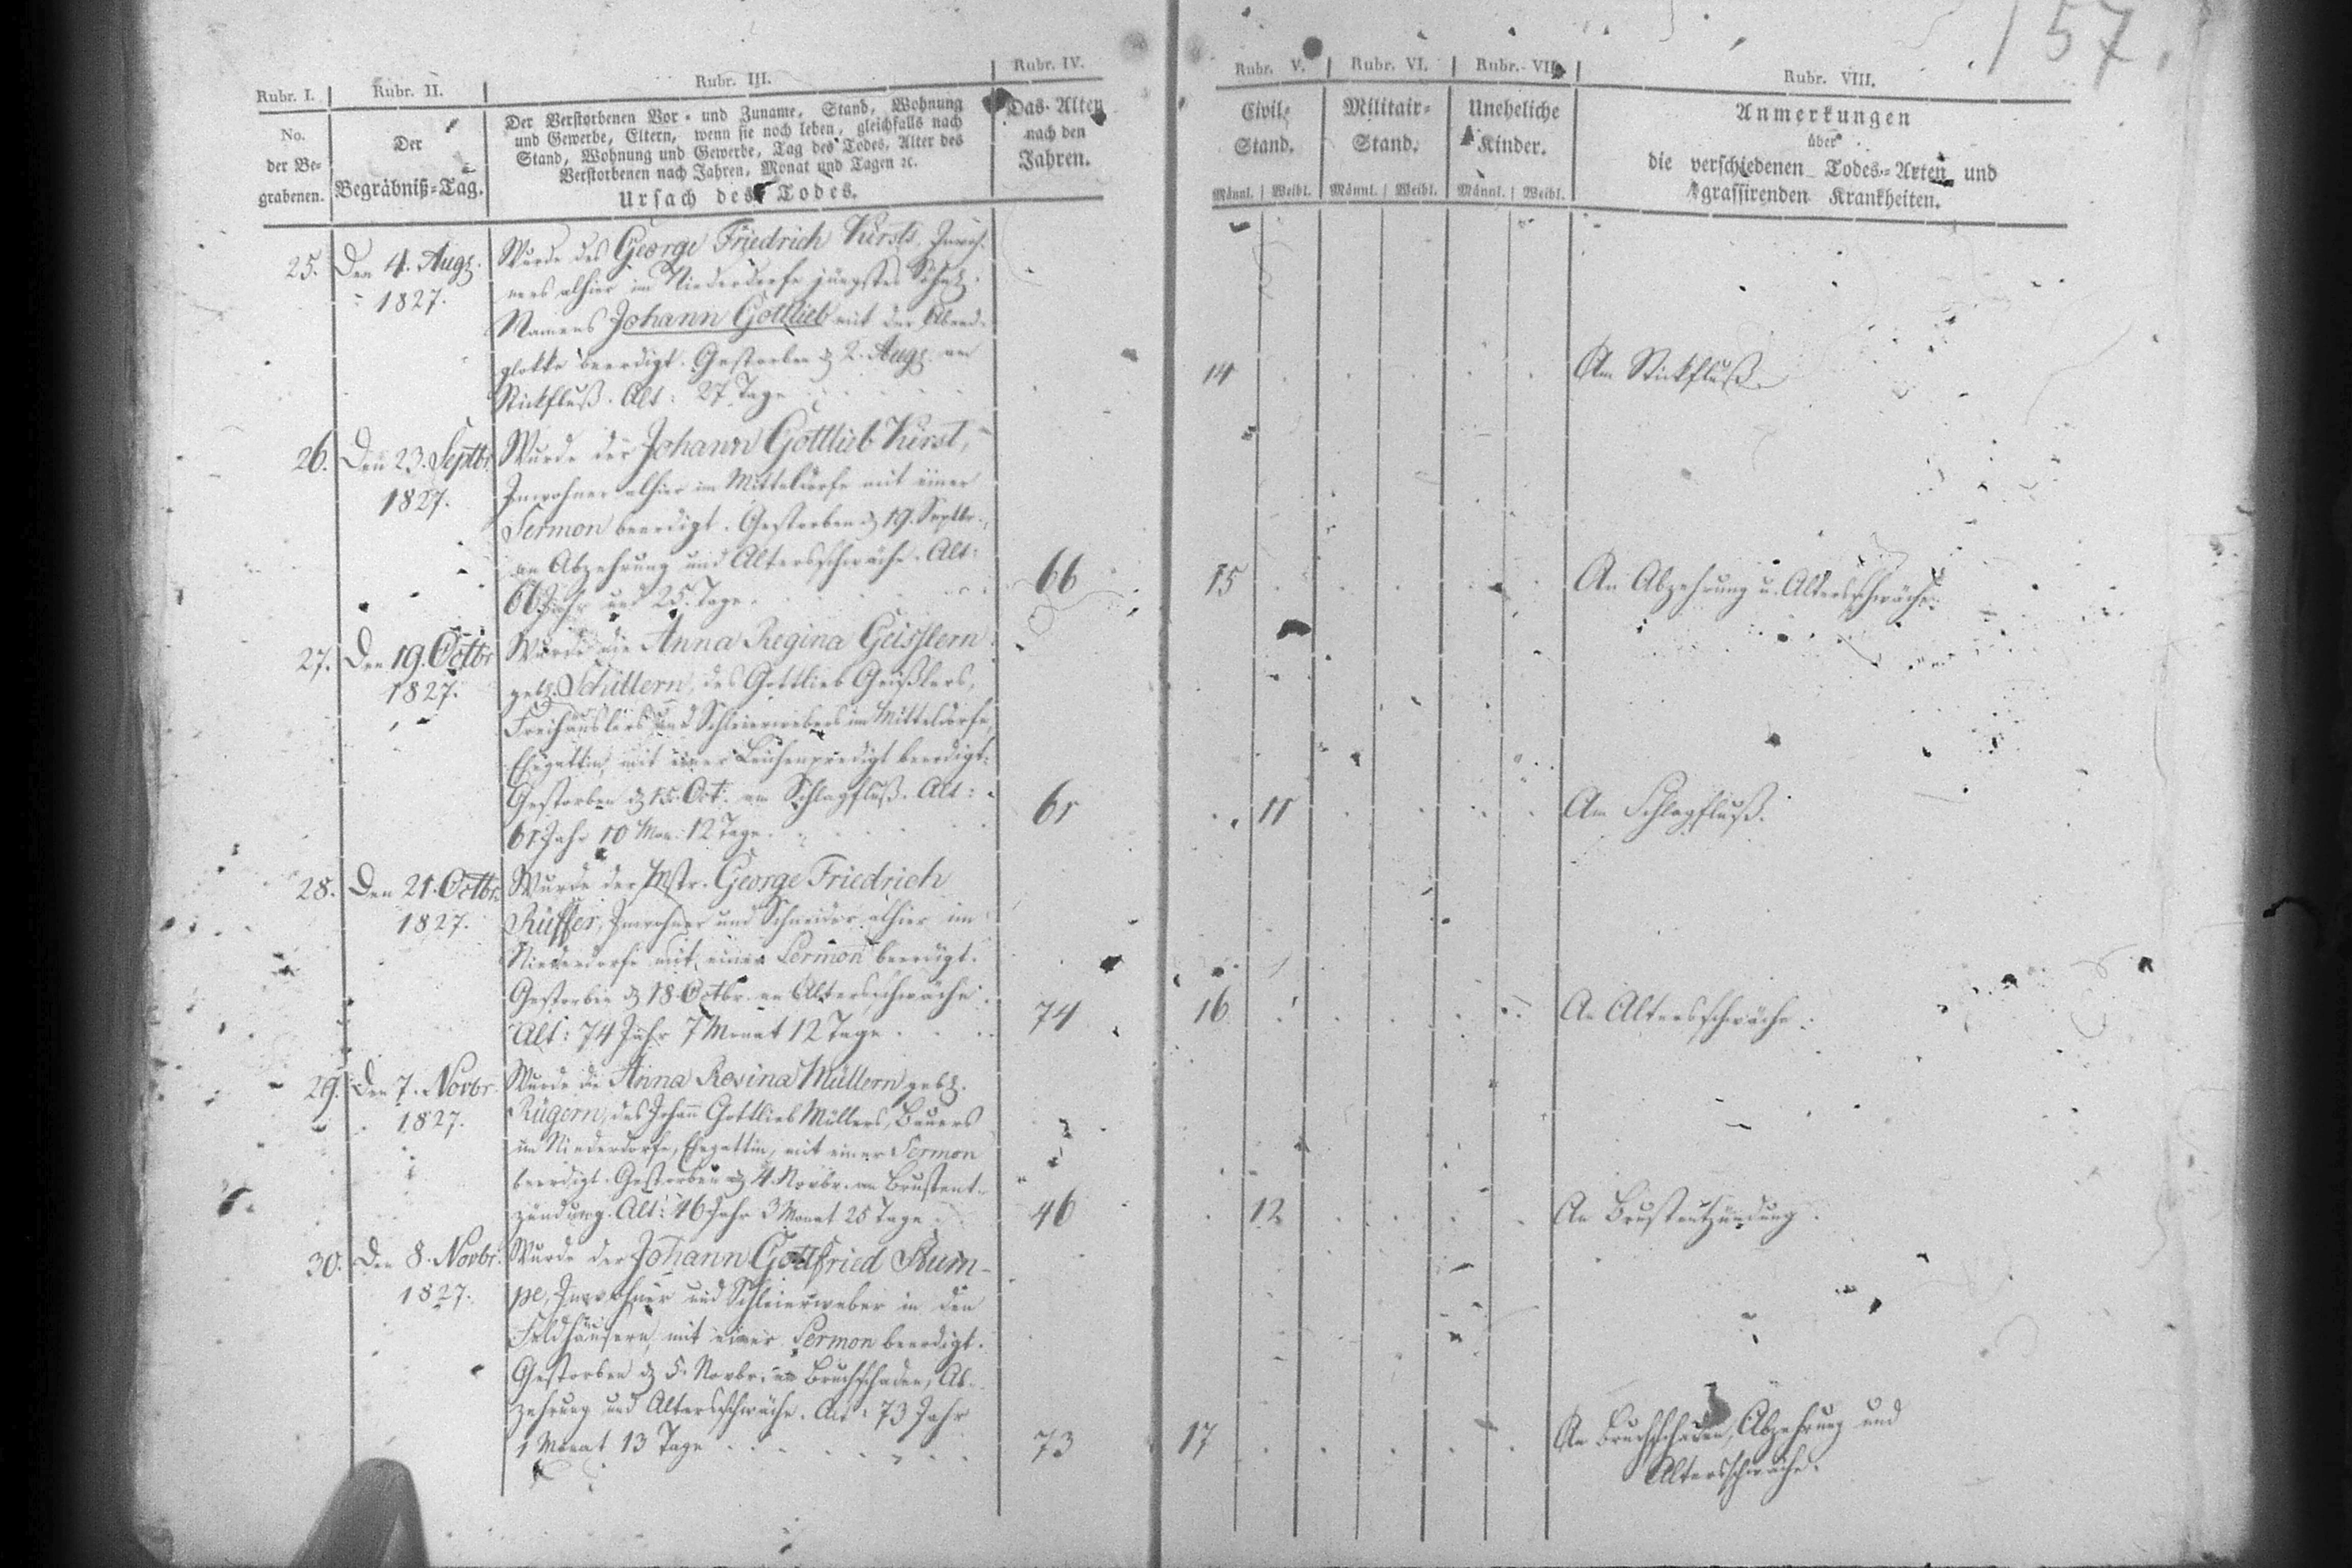 157.
Rubr. I.
Rubr. II.
Rubr. III.
Rubr. IV.
Rubr. V.
Rubr. VI.
Rubr. VII.
Rubr. VIII.
No.
der Be-
grabenen.
Der
Begräbniß-Tag.
Der Verstorbenen Vor- und Zuname, Stand, Wohnung
und Gewerbe, Eltern, wenn sie noch leben, gleichfalls nach
Stand, Wohnung und Gewerbe, Tag des Todes, Alter des
Verstorbenen nach Jahren, Monat und Tagen ꝛc.
Ursach des Todes.
Das Alter
nach den
Jahren.
Civil-
Stand.
Männl. Weibl.
Militair-
Stand.
Männl. Weibl.
Uneheliche
Kinder.
Männl. Weibl.
Anmerkungen
über
die verschiedenen Todes-Arten und
grassirenden Krankheiten.
25. Den 4. Aug.
1827.
Wurde des George Friedrich Kirsts, Inwoh-
ners alhier im Niederdorfe jüngstes Söhnl.
Namens Johann Gottlieb mit der Abend-
glokke beerdigt. Gestorben d. 2. Aug. am
Stickfluß. Alt: 27 Tage
14
Am Stickfluß.
26. Den 23. Septbr.
1827.
Wurde der Johann Gottlieb Kirst,
Inwohner alhier im Mitteldorfe mit einer
Sermon beerdigt. Gestorben d. 19. Septbr.
an Abzehrung und Altersschwäche. Alt:
66 Jahr und 25. Tage.
66
15
An Abzehrung u. Altersschwäche.
27. Den 19. Octbr
1827.
Wurde die Anna Regina Geisslern
geb. Schillern, des Gottlieb Geißlers,
Freihäuslers und Schleierwebers im Mitteldorfe,
Ehegattin, mit einer Leichenpredigt beerdigt.
Gestorben d. 15. Oct. am Schlagfluß. Alt:
61 Jahr 10 Mon. 12 Tage.
61
11
Am Schlagfluß.
28. Den 21. Octbr.
1827.
Wurde der Mstr. George Friedrich
Rüffer, Inwohner und Schneider alhier im
Niederdorfe mit einer Sermon beerdigt.
Gestorben d. 18. Octbr. an Altersschwäche.
Alt: 74 Jahr 7 Monat 12 Tage
74
16
An Altersschwäche.
29. Den 7. Novbr.
1827.
Wurde die Anna Rosina Müllern geb.
Rügern, des Johann Gottlieb Müllers, Bauers
im Niederdorfe, Ehegattin, mit einer Sermon
beerdigt. Gestorben d. 4. Novbr. an Brustent-
zündung. Alt: 46 Jahr 3 Monat 25 Tage
46
12
An Brustentzündung.
30. Den 8. Novbr.
1827.
Wurde der Johann Gottfried Rum-
pe, Inwohner und Schleierweber in den
Feldhäusern, mit einer Sermon beerdigt.
Gestorben d. 5. Novbr. an Bruchschaden, Ab-
zehrung und Altersschwäche. Alt: 73 Jahr
1 Monat 13 Tage
73
17
An Bruchschaden, Abzehrung und
Altersschwäche.